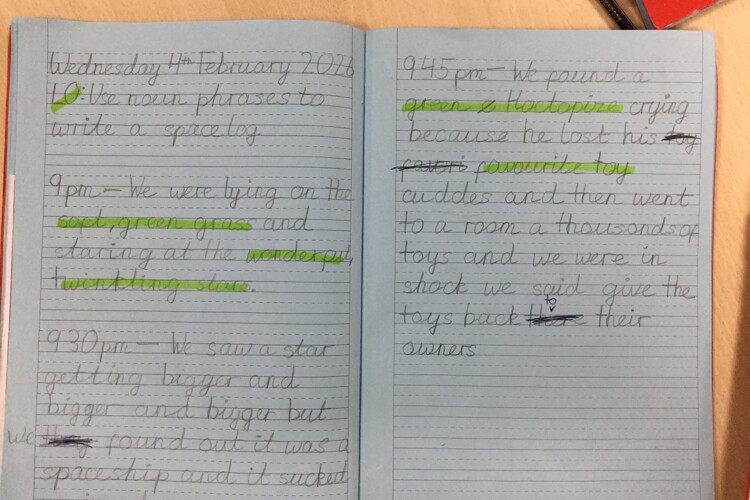 Wednesday 4th February 2026
LO: Use noun phrases to
write a space log.
9pm — We were lying on the
soft, green grass and
staring at the wonderful,
twinkling stars.
930pm — We saw a star
getting bigger and
bigger and bigger but
we found out it was a
spaceship and it sucked
945pm — We found a
green Hoctopize crying
because he lost his
favourite toy
cuddes and then went
to a room a thousands of
toys and we were in
shock we said give the
toys back to their
owners